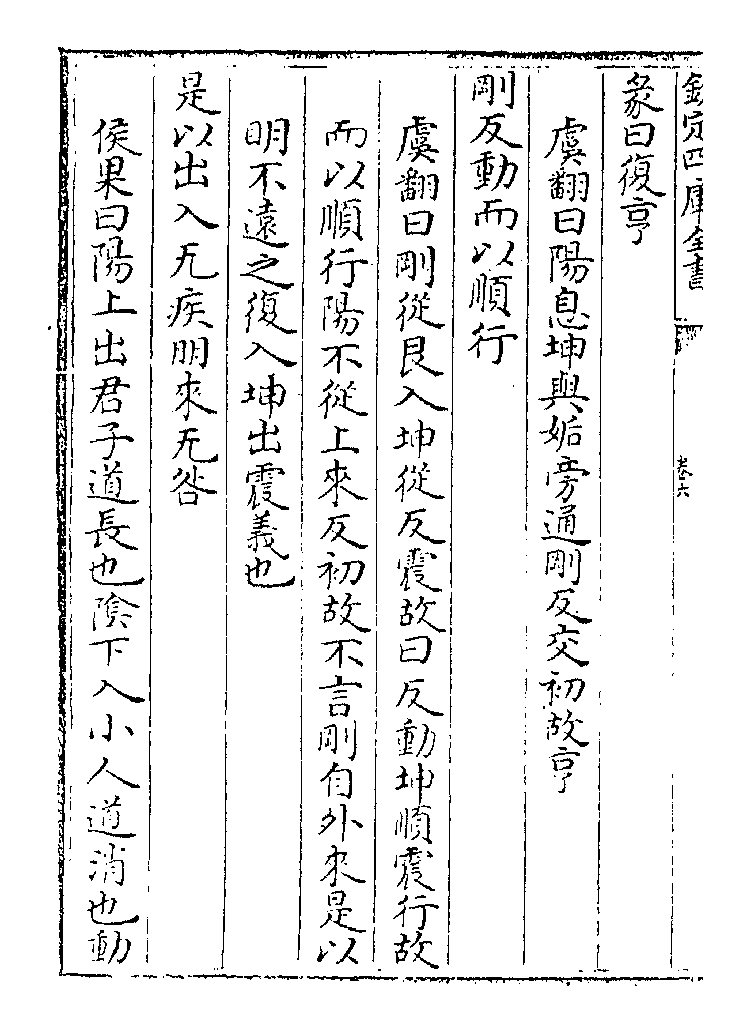 欽定四庫全書
卷六
彖曰復亨
虞翻曰陽息坤與姤旁通剛反交初故亨
剛反動而以順行
虞翻曰剛從艮入坤從反震故曰反動坤順震行故
而以順行陽不從上來反初故不言剛自外來是以
明不遠之復入坤出震義也
是以出入无疾朋來无咎
侯果曰陽上出君子道長也隂下入小人道消也動